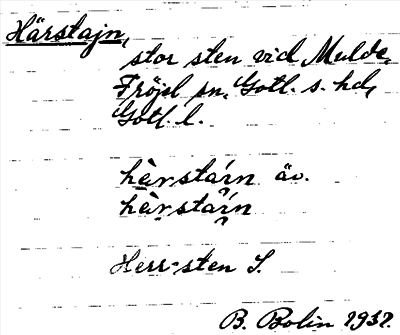 Härstajn,
stor sten vid Mulde,
Fröjel sn, Gotl. s. hd,
Gotl. l.
hèrstáin äv.
hèrstáin
Herr-sten S.
B. Bolin 1937.